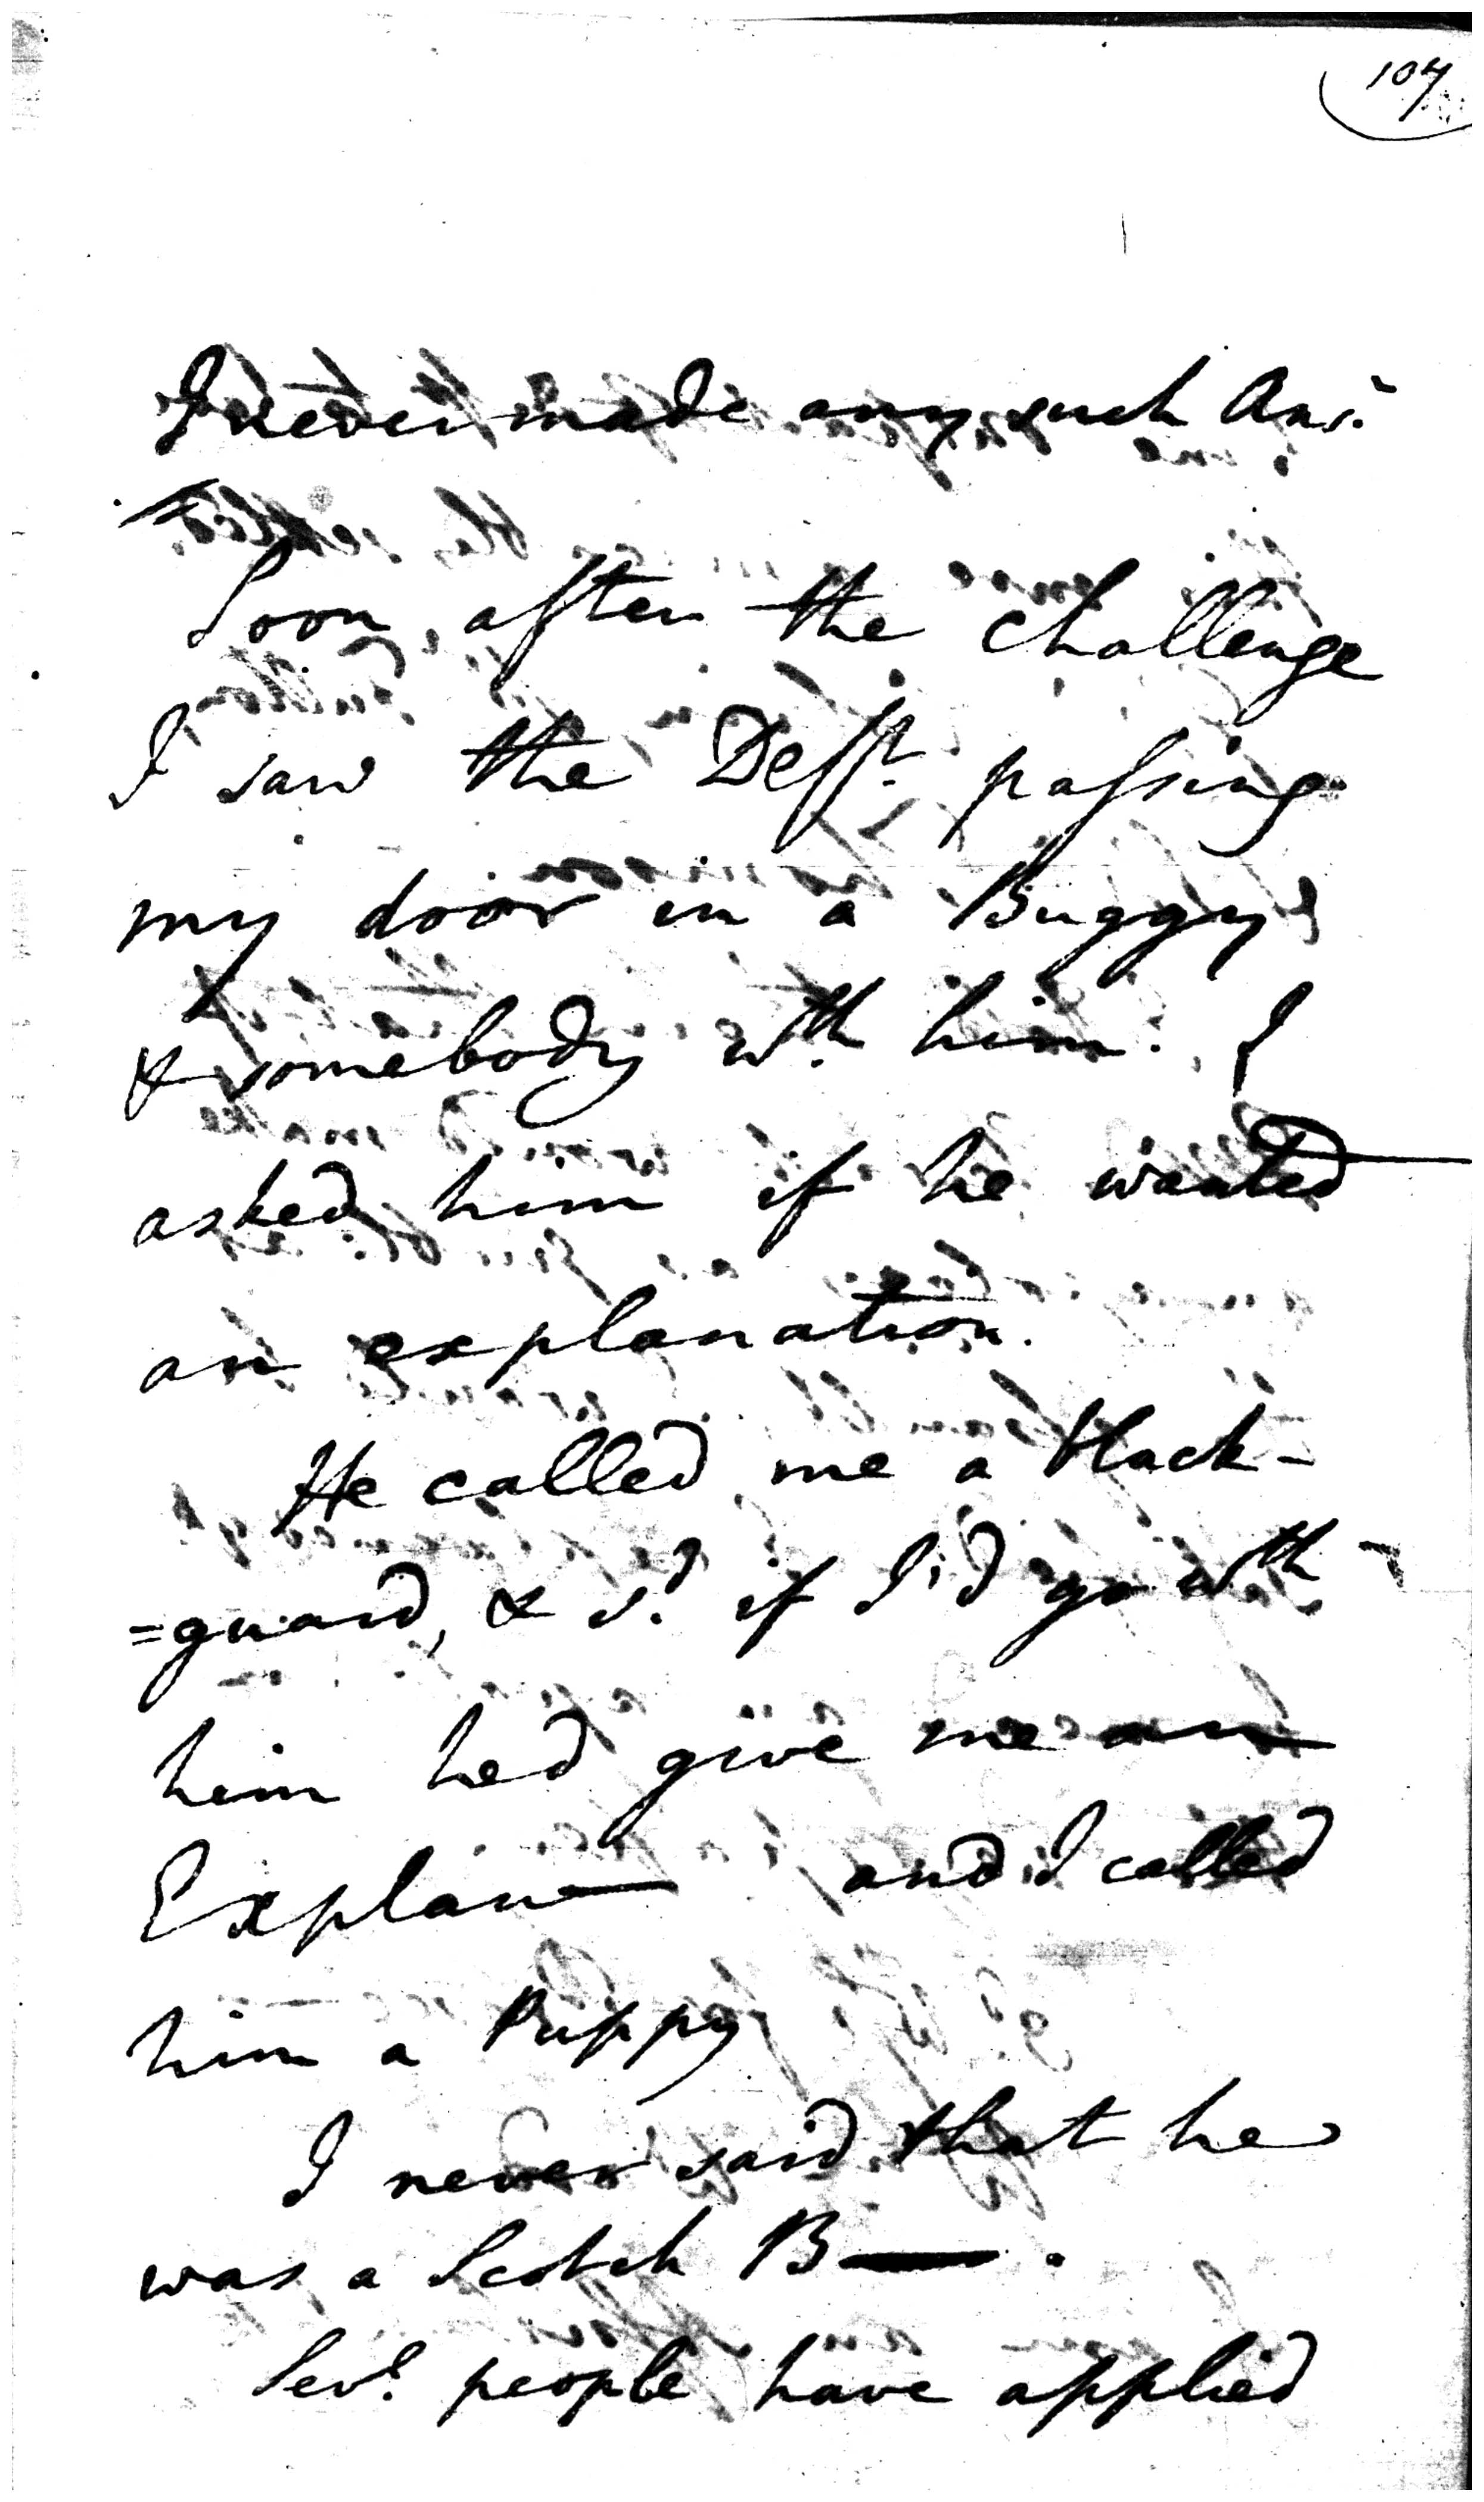 104
I never made any such Ans.r
Soon after the Challenge
I saw the Deft. passing
my door in a Buggy
& somebody wth. him. I
asked him if he wanted
an explanation.
He called me a black-
=guard, & sd. if I'd go wth
him he'd give me an
Explan— and I called
him a Puppy
I never said that he
was a Scotch B—.
Sevl. people have applied